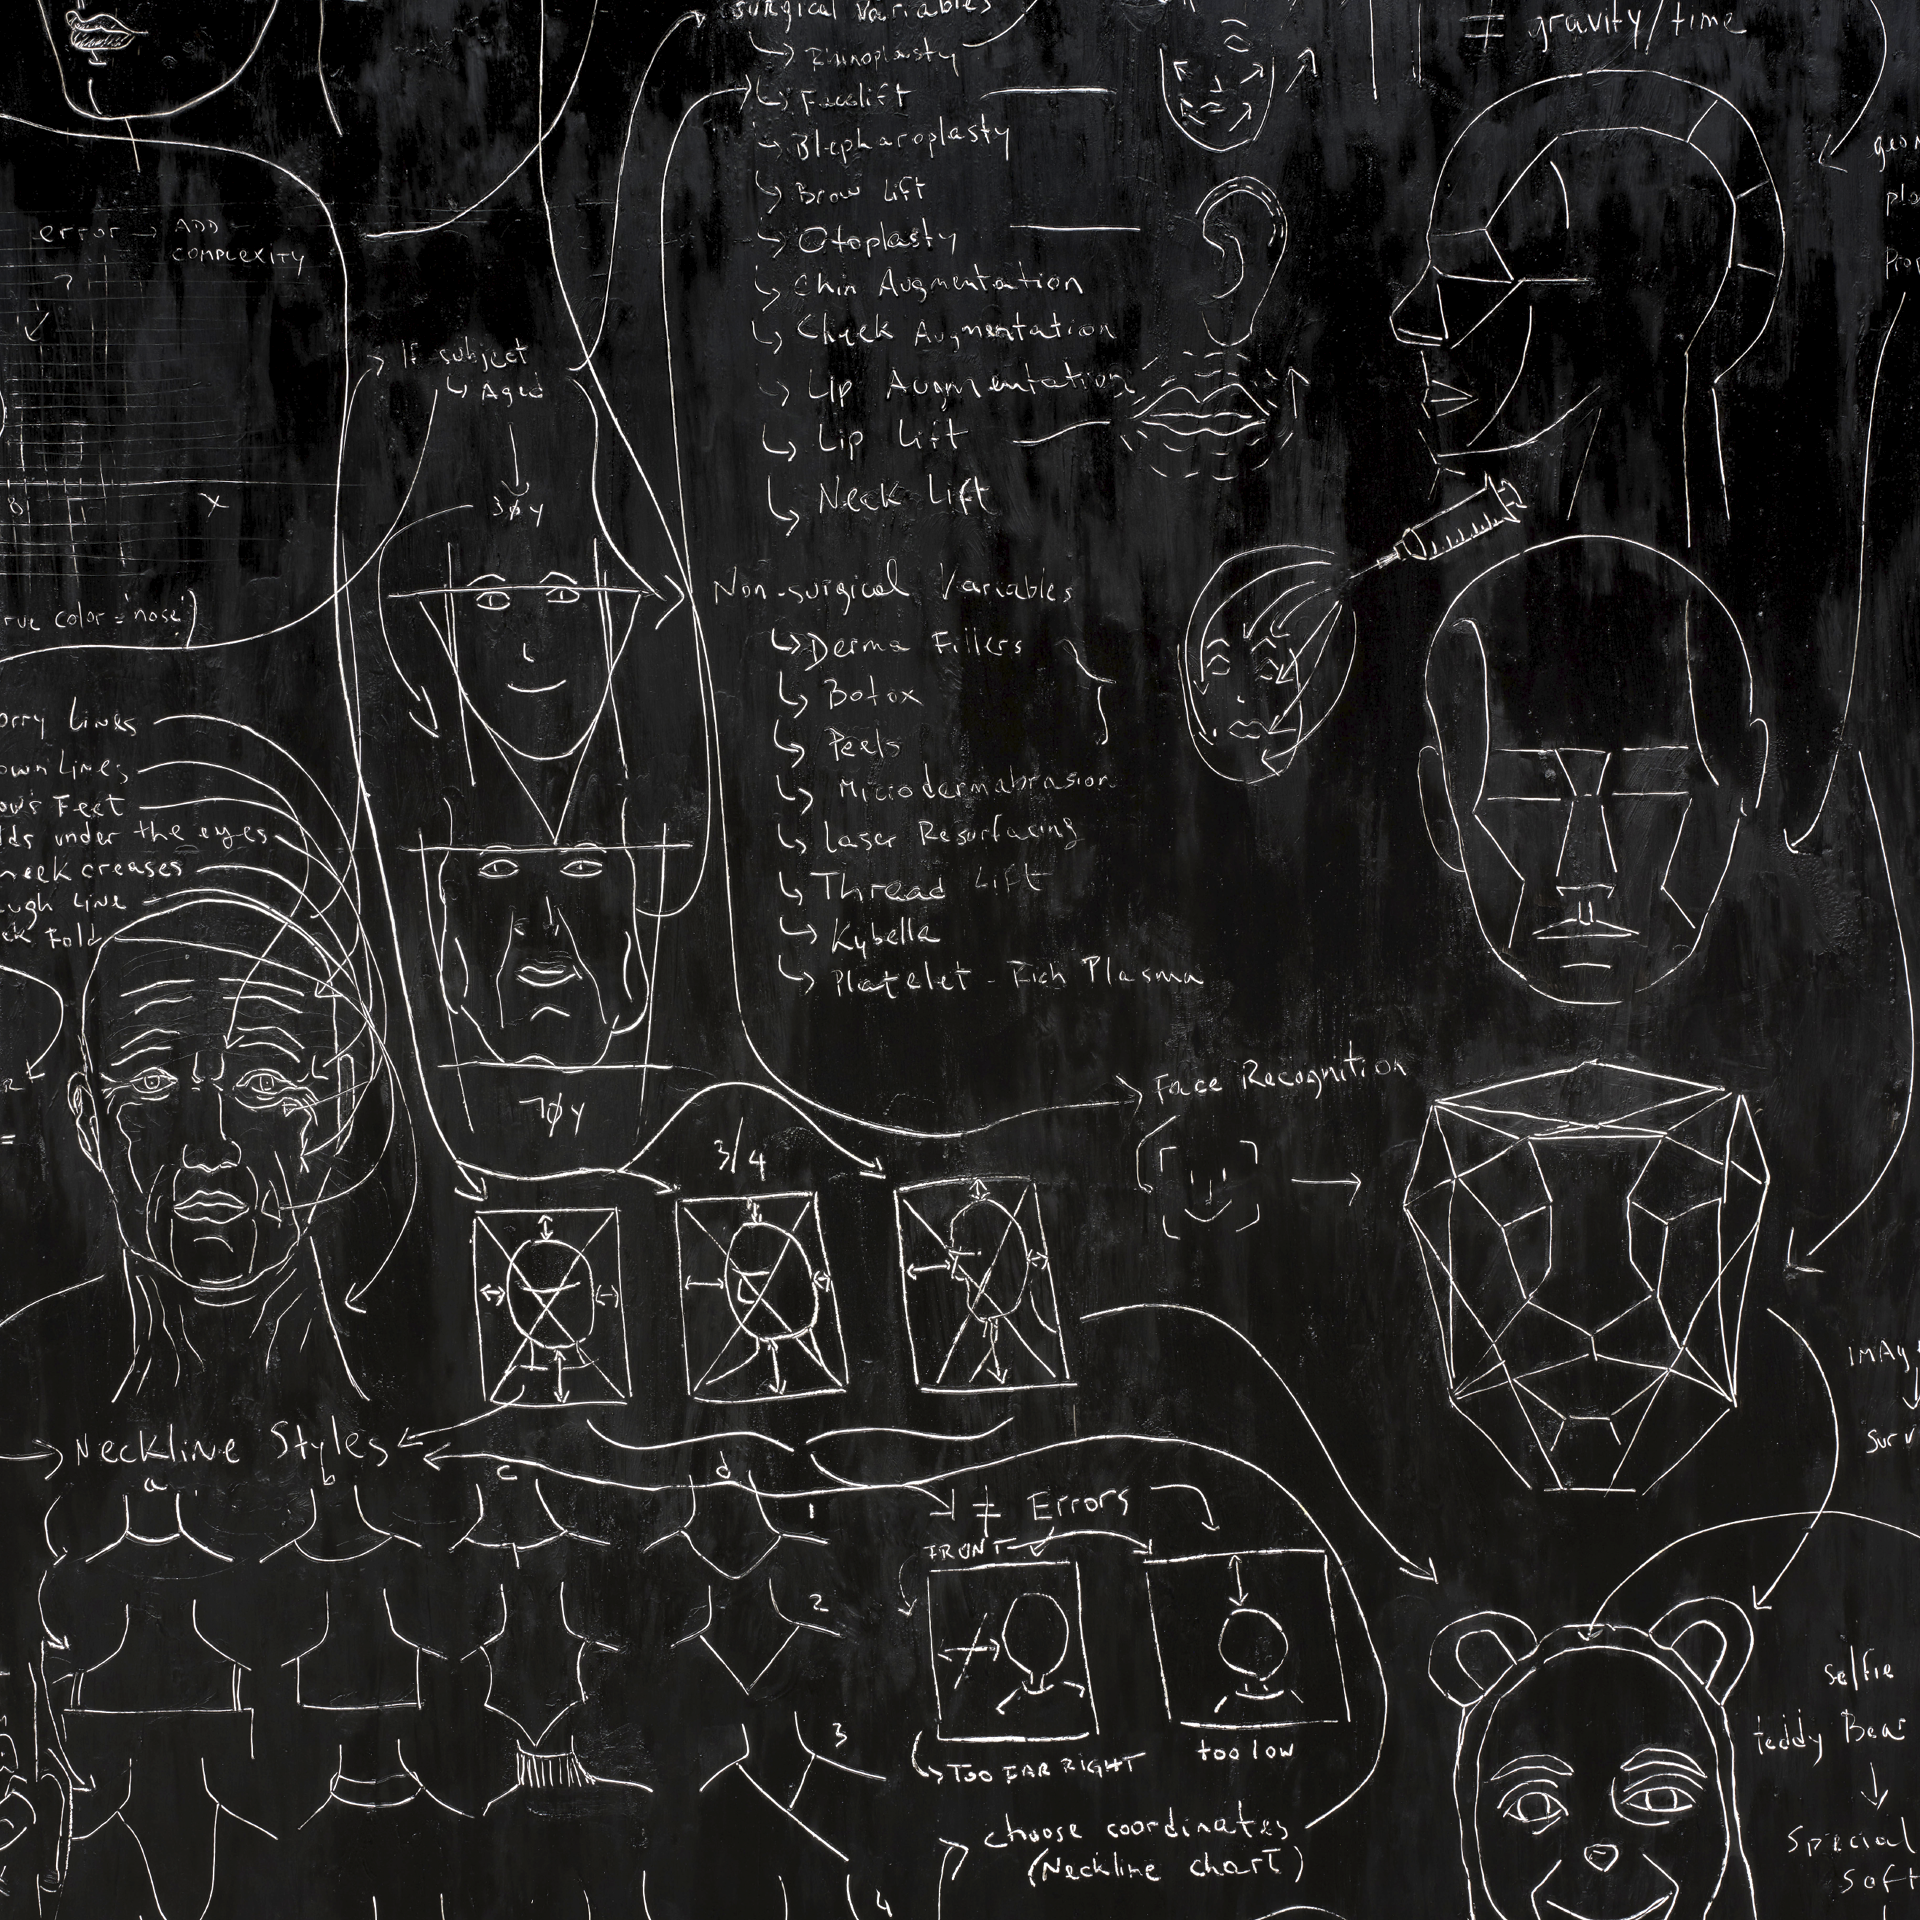 surgical Variables
Rhinoplasty
Facelift
Blepharoplasty
Brow Lift
Otoplasty
Chin Augmentation
Cheek Augmentation
Lip Augmentation
Lip Lift
Neck Lift
≠ gravity/time
error → ADD
COMPLEXITY
?
X
If subject
Aged
30y
color='nose')
Lines
Lines
Feet
under the eyes
creases
Line
Fold
=
70y
Non-surgical Variables
Derma Fillers
Botox
Peels
Microdermabrasion
Laser Resurfacing
Thread Lift
Kybella
Platelet-Rich Plasma
Face Recognition
3/4
Neckline Styles
a b c d
1
2
3
4
≠ Errors
FRONT
TOO FAR RIGHT
too low
choose coordinates
(Neckline chart)
selfie
teddy Bear
Special